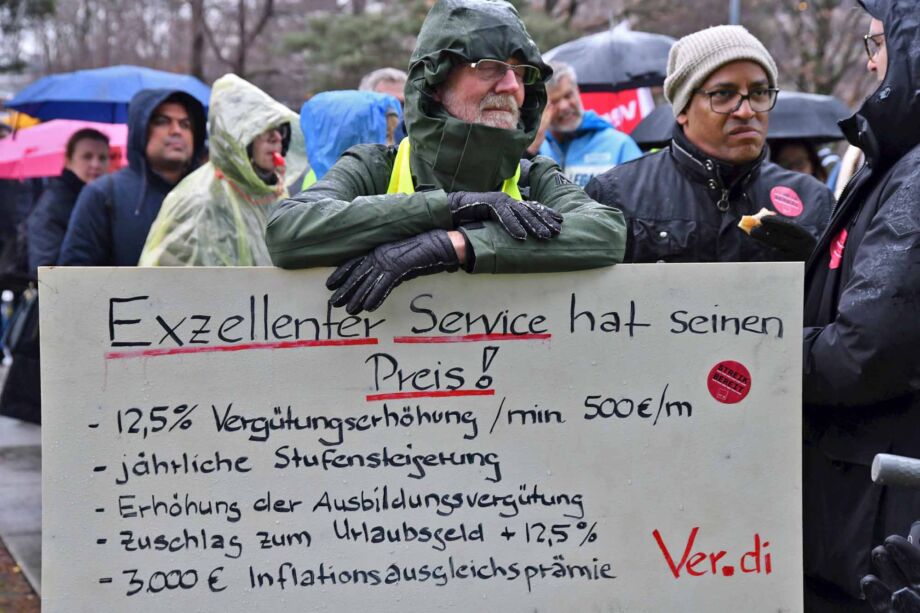 Exzellenter Service hat seinen
Preis!
STREIK
BEREIT
- 12,5% Vergütungserhöhung /min 500€/m
- jährliche Stufensteigerung
- Erhöhung der Ausbildungsvergütung
- Zuschlag zum Urlaubsgeld + 12,5%
- 3.000 € Inflationsausgleichsprämie
Ver.di